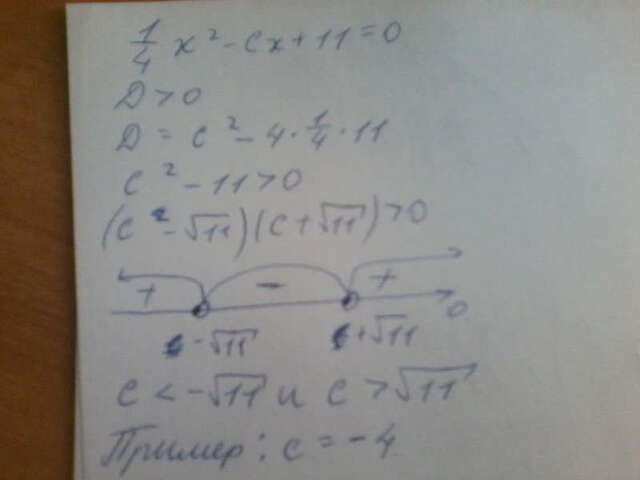 1/4 x² - cx + 11 = 0
D > 0
D = c² - 4 · 1/4 · 11
c² - 11 > 0
(c² - √11)(c + √11) > 0
+ - +
-√11 +√11 c
c < -√11 и c > √11
Пример: c = -4